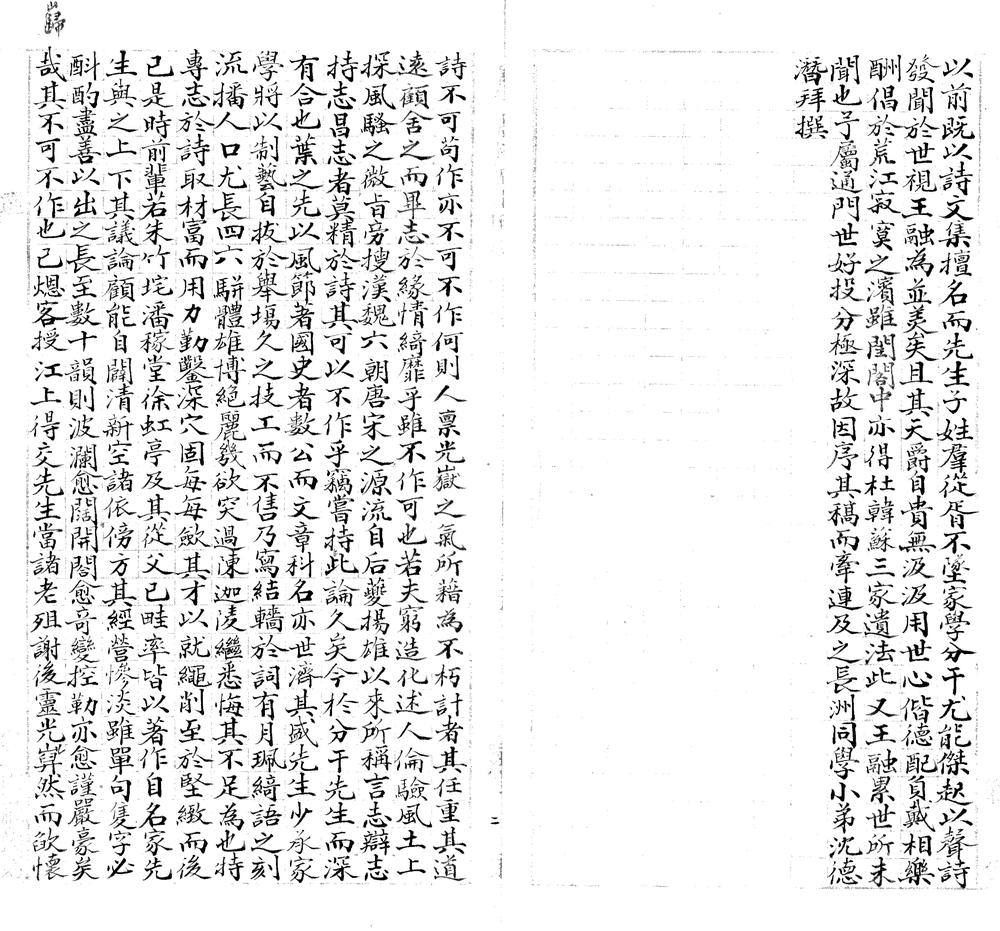 以前既以詩文集擅名而先生子姓羣從胥不墜家學分干尤能傑起以聲詩
發聞於世視王融為並美矣且其天爵自貴無汲汲用世心偕德配負戴相樂
酬倡於荒江寂寞之濱雖閨閤中亦得杜韓蘇三家遺法此又王融累世所未
聞也予屬通門世好投分極深故因序其稿而牽連及之長洲同學小弟沈德
潛拜撰
詩不可苟作亦不可不作何則人禀光嶽之氣所藉為不朽計者其任重其道
遠顧舍之而畢志於緣情綺靡乎雖不作可也若夫窮造化述人倫驗風土上
探風騷之微旨旁搜漢魏六朝唐宋之源流自后夔揚雄以來所稱言志辯志
持志昌志者莫精於詩其可以不作乎竊嘗持此論久矣今於分干先生而深
有合也葉之先以風節著國史者數公而文章科名亦世濟其盛先生少承家
學將以制藝自拔於舉塲久之技工而不售乃寫結轖於詞有月珮綺語之刻
流播人口尤長四六駢體雄博絕麗幾欲突過陳迦陵繼悉悔其不足為也特
專志於詩取材富而用力勤鑿深穴固每每斂其才以就繩削至於堅緻而後
已是時前輩若朱竹垞潘稼堂徐虹亭及其從父已畦率皆以著作自名家先
生與之上下其議論顧能自闢清新空諸依傍方其經營慘淡雖單句隻字必
斟酌盡善以出之長至數十韻則波瀾愈闊開閤愈奇變控勒亦愈謹嚴豪矣
哉其不可不作也已熜客授江上得交先生當諸老殂謝後靈光巋然而欿懷
巋
二